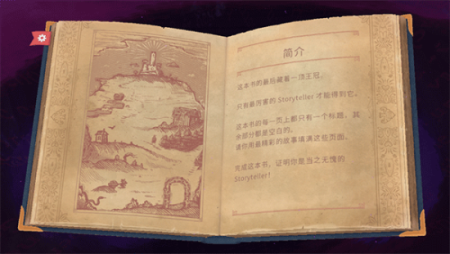 简介
这本书的最后藏着一顶王冠。
只有最厉害的 Storyteller 才能得到它。
这本书的每一页上都只有一个标题，其
余部分都是空白的。
请你用最精彩的故事填满这些页面。
完成这本书，证明你是当之无愧的
Storyteller!